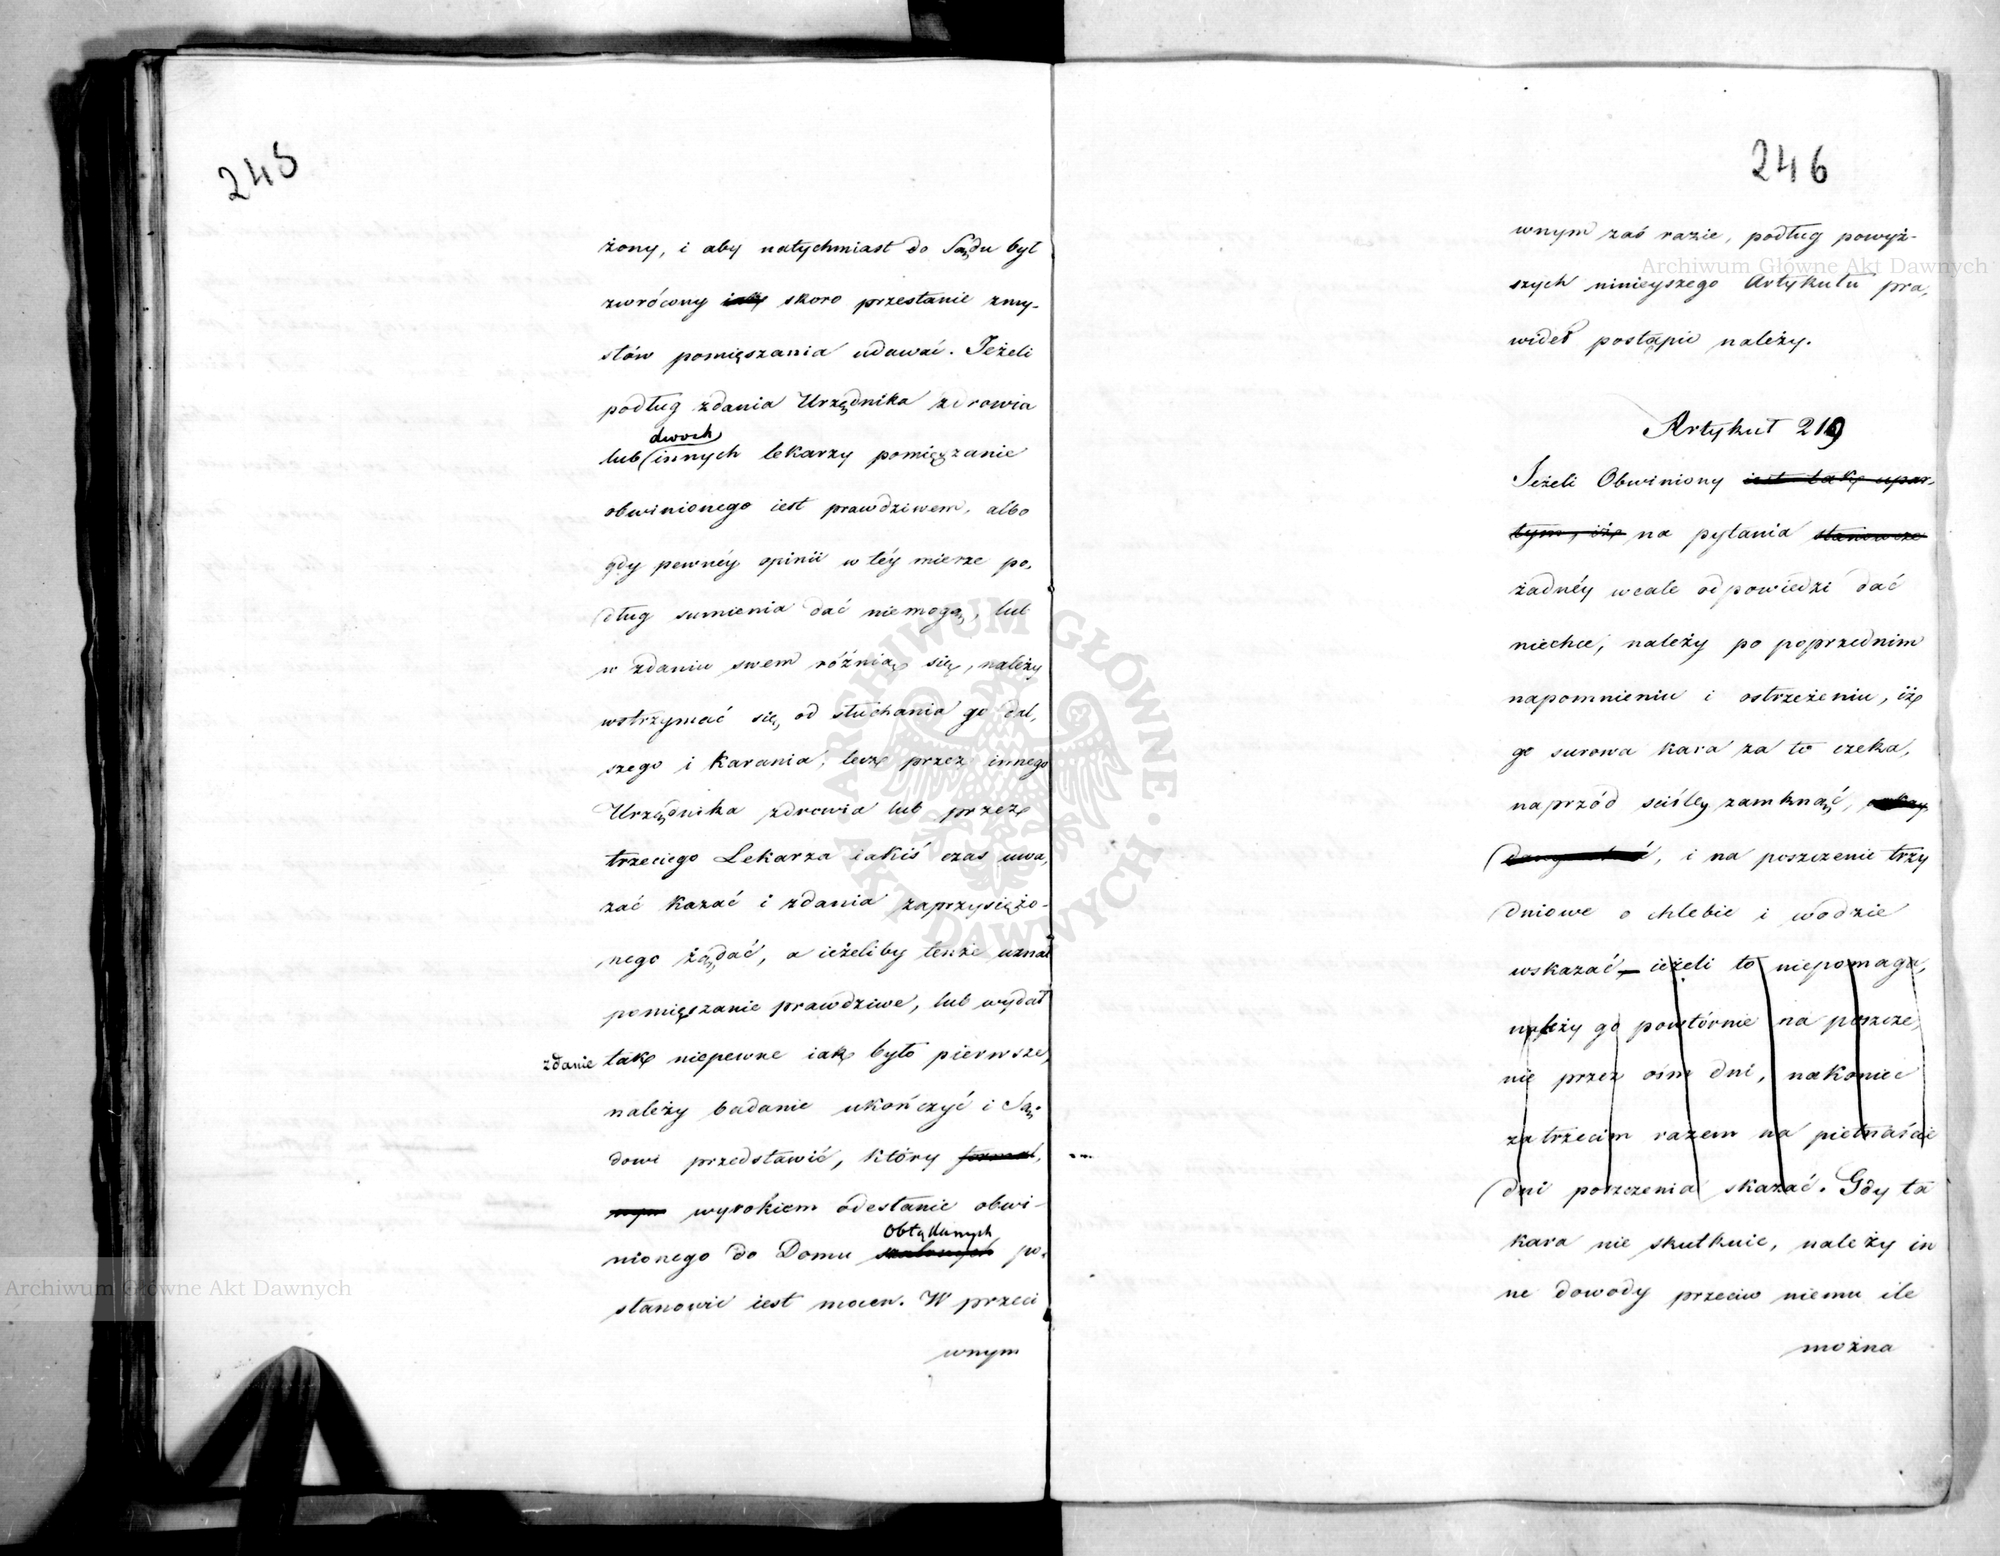 245
żony, i aby natychmiast do Sądu był
zwrócony iak skoro przestanie zmy-
słów pomięszania udawać. Jeżeli
podług zdania Urzędnika zdrowia
dwoch
lub innych lekarzy pomięszanie
obwinionego iest prawdziwem, albo
gdy pewnéy opinii w téy mierze po-
dług sumienia dać niemogą, lub
w zdaniu swem różnią się, należy
wstrzymać się od słuchania go dal-
szego i karania, lecz przez innego
Urzędnika zdrowia lub przez
trzeciego Lekarza iakiś czas uwa-
żać kazać i zdania zaprzysiężo-
nego żądać, a ieżeliby tenże uznał
pomięszanie prawdziwe, lub wydał
zdanie tak niepewne iak było pierwsze,
należy badanie ukończyć i Są-
dowi przedstawić, który formal-
nym wyrokiem odesłanie obwi-
Obłąkanych
nionego do Domu szalonych po-
stanowić iest mocen. W przeci
wnym
246
wnym zaś razie, podług powyż-
szych ninieyszego Artykułu pra-
wideł postąpić należy.
Artykuł 219
Jeżeli Obwiniony iest tak upar-
tym, iż na pytania stanowcze
żadnéy wcale odpowiedzi dać
niechce, należy po poprzednim
napomnieniu i ostrzeżeniu, iż
go surowa kara za to czeka,
naprzód ściśley zamknąć,
, i na poszczenie trzy
dniowe o chlebie i wodzie
wskazać, ieżeli to niepomaga,
należy go powtórnie na poszcze-
nie przez ośm dni, nakoniec
za trzecim razem na piętnaście
dni poszczenia skazać. Gdy ta
kara nie skutkuie, należy in
ne dowody przeciw niemu ile
można
Archiwum Główne Akt Dawnych
Archiwum Główne Akt Dawnych
ARCHIWUM GŁÓWNE AKT DAWNYCH